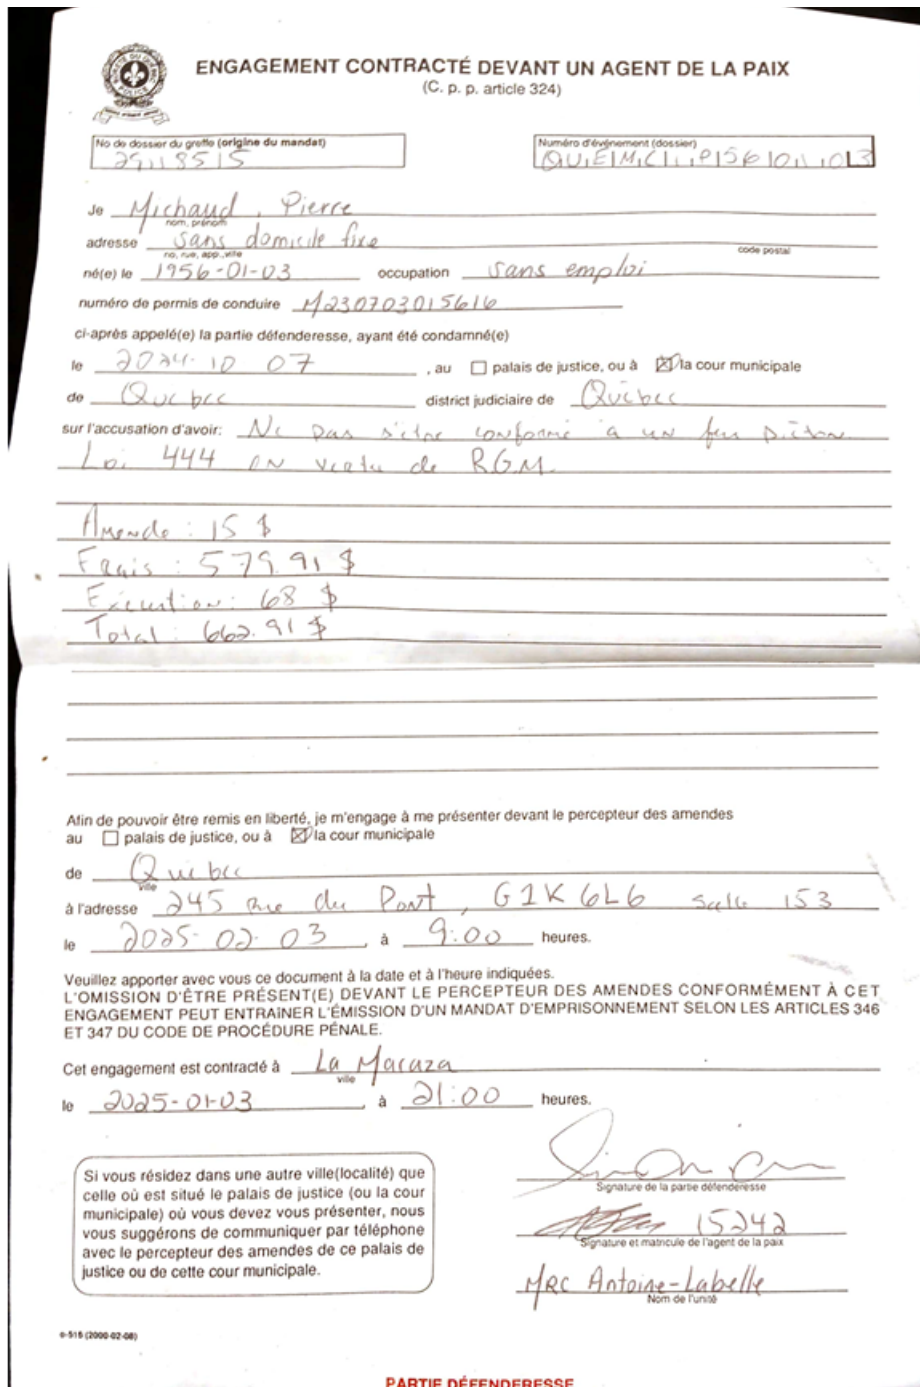 ENGAGEMENT CONTRACTÉ DEVANT UN AGENT DE LA PAIX
(C. p. p. article 324)
No de dossier du greffe (origine du mandat)
29118515
Numéro d'événement (dossier)
Je Michaud, Pierre
nom, prénom
adresse sans domicile fixe
no, rue, app., ville code postal
né(e) le 1956-01-03 occupation sans emploi
numéro de permis de conduire M230703015616
ci-après appelé(e) la partie défenderesse, ayant été condamné(e)
le 2024-10 07, au palais de justice, ou à la cour municipale
de Québec district judiciaire de Québec
sur l'accusation d'avoir: Ne pas s'être conformé à un feu piéton.
Loi 444 en vertu de RGM.
Amende : 15 $
Frais : 579.91 $
Exécution : 68 $
Total : 662.91 $
Afin de pouvoir être remis en liberté, je m'engage à me présenter devant le percepteur des amendes
au palais de justice, ou à la cour municipale
de Québec
ville
à l'adresse 245 rue du Pont, G1K 6L6 Salle 153
le 2025-02-03, à 9:00 heures.
Veuillez apporter avec vous ce document à la date et à l'heure indiquées.
L'OMISSION D'ÊTRE PRÉSENT(E) DEVANT LE PERCEPTEUR DES AMENDES CONFORMÉMENT À CET
ENGAGEMENT PEUT ENTRAÎNER L'ÉMISSION D'UN MANDAT D'EMPRISONNEMENT SELON LES ARTICLES 346
ET 347 DU CODE DE PROCÉDURE PÉNALE.
Cet engagement est contracté à La Macaza
ville
le 2025-01-03, à 21:00 heures.
Si vous résidez dans une autre ville(localité) que
celle où est situé le palais de justice (ou la cour
municipale) où vous devez vous présenter, nous
vous suggérons de communiquer par téléphone
avec le percepteur des amendes de ce palais de
justice ou de cette cour municipale.
Signature de la partie défenderesse
15242
Signature et matricule de l'agent de la paix
MRC Antoine-Labelle
Nom de l'unité
e-516 (2000-02-08)
PARTIE DÉFENDERESSE